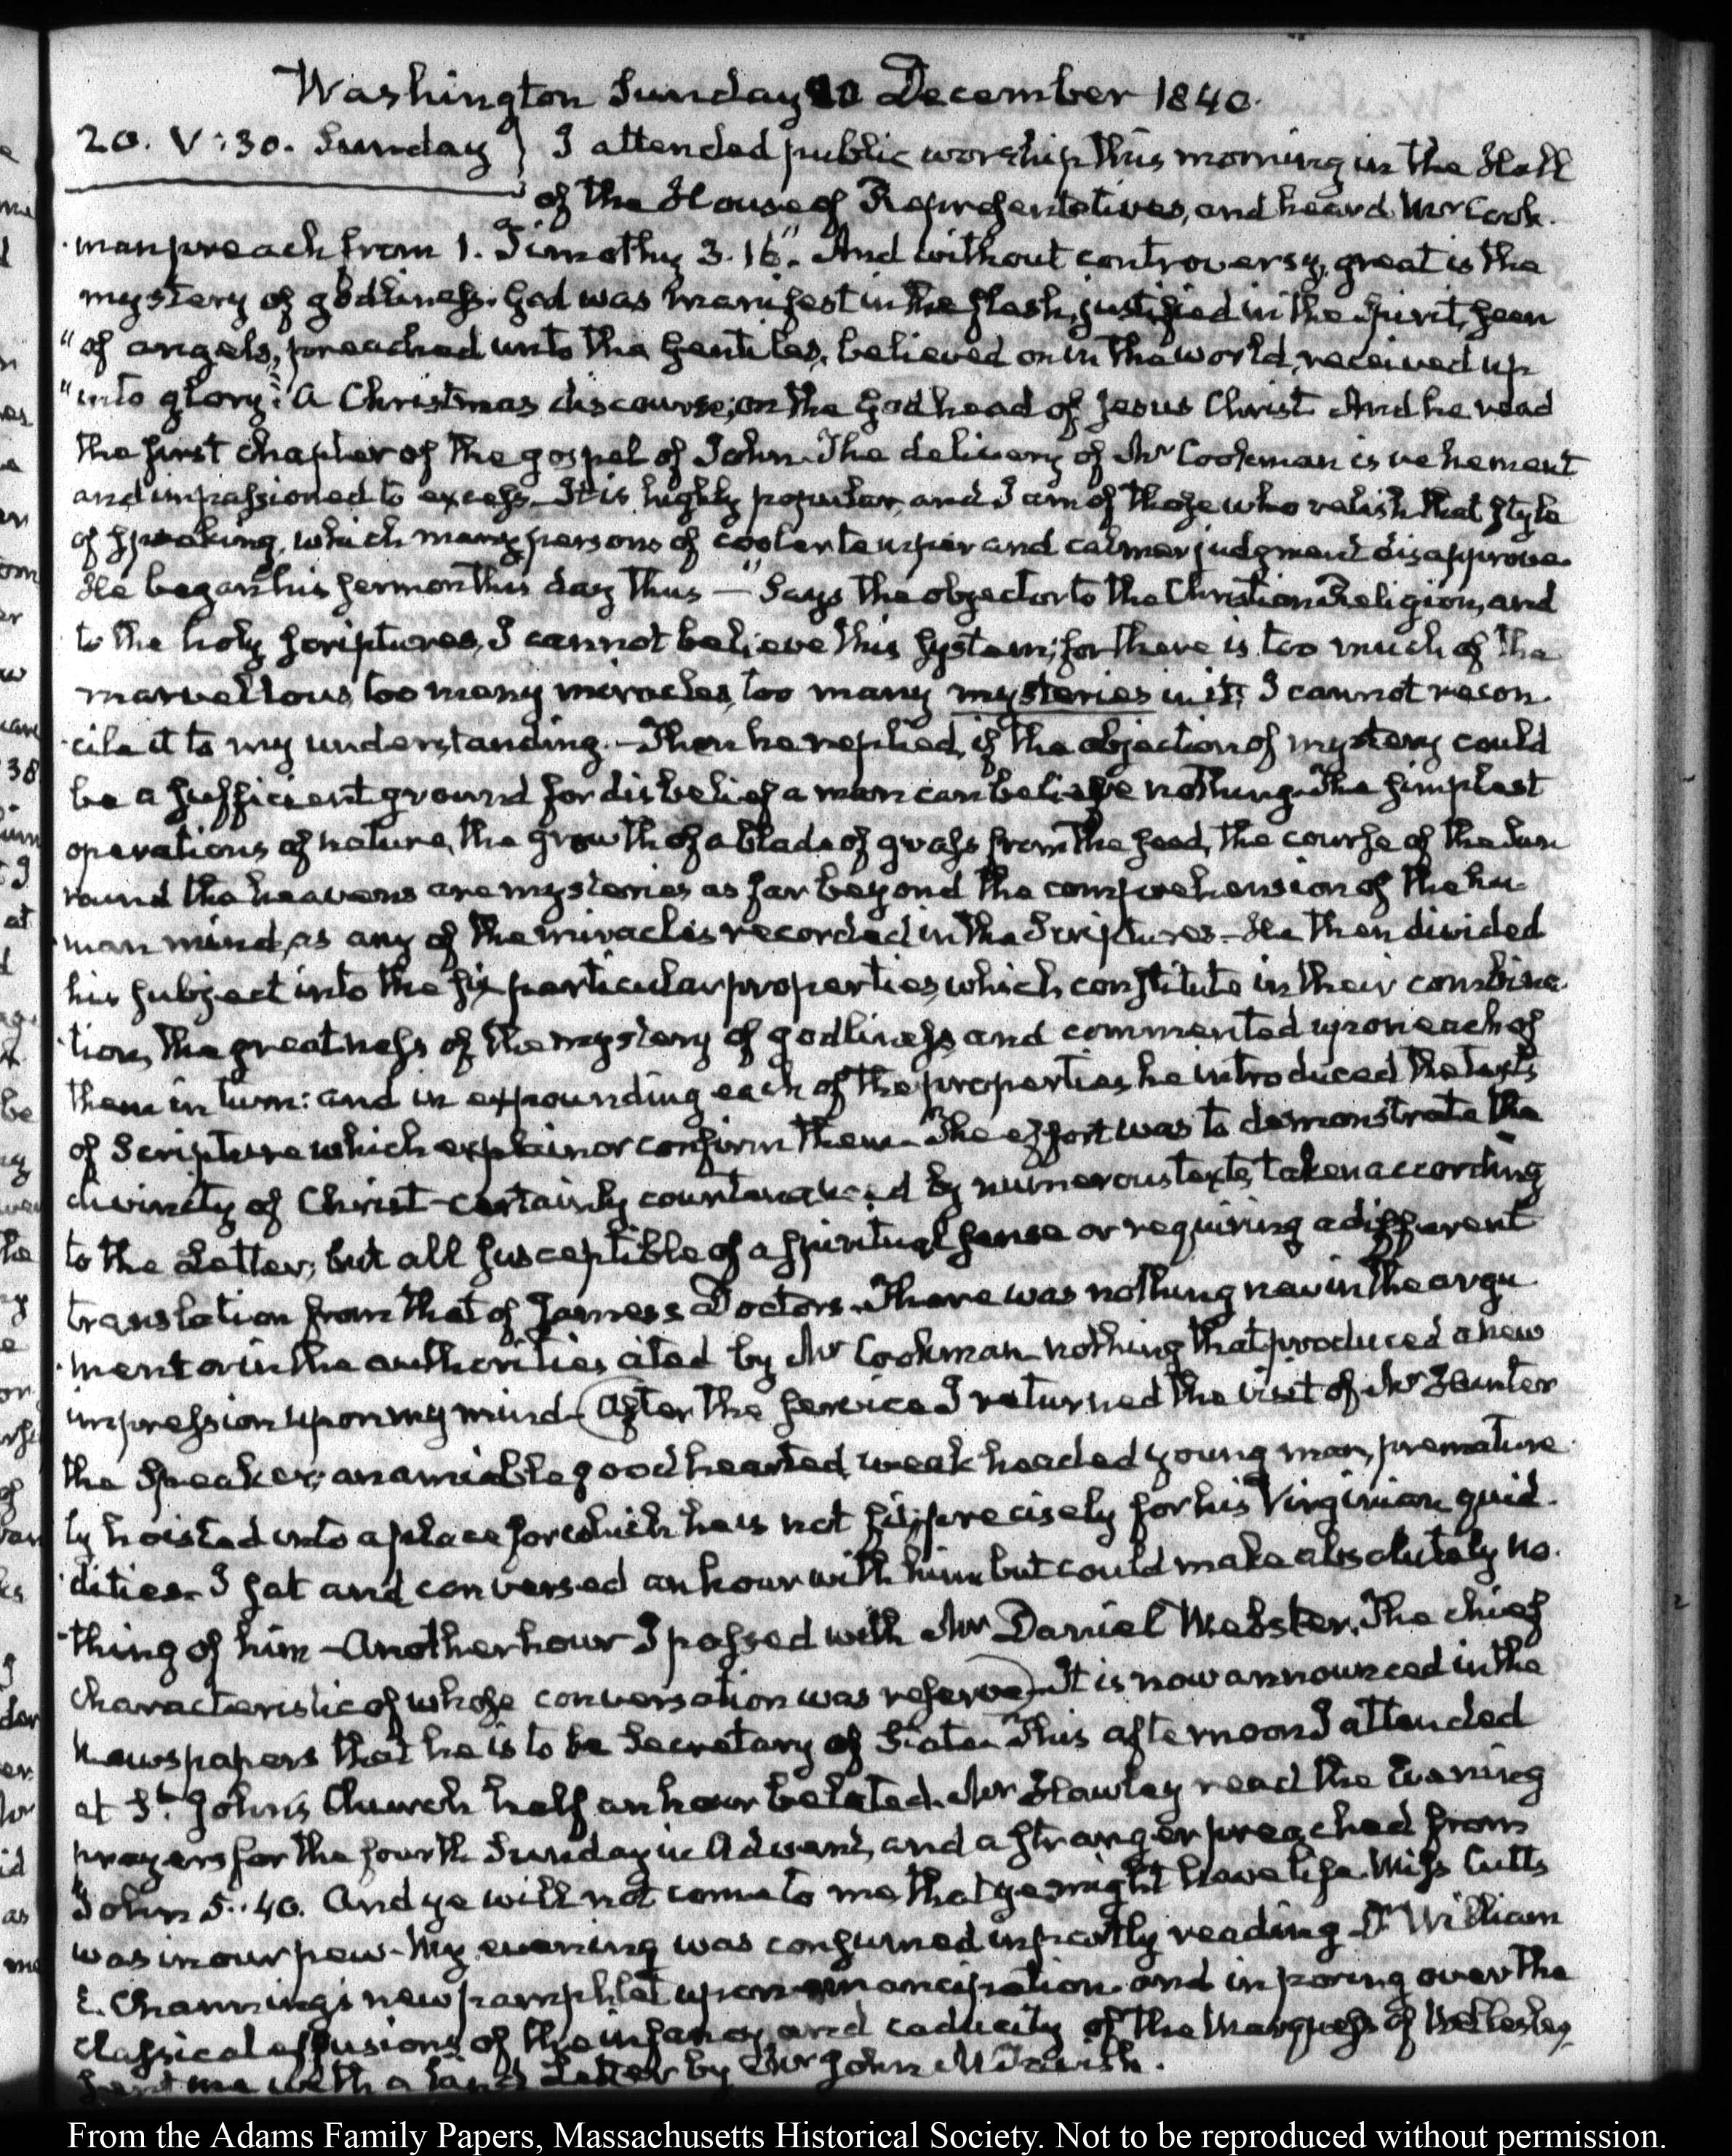 Washington Sunday 20 December 1840.
20. V:30. Sunday } I attended public worship this morning in the Hall
of the House of Representatives, and heard Mr Cook-
man preach from 1. Timothy 3.16. "And without controversy, great is the
mystery of godliness. God was manifest in the flesh, justified in the Spirit, seen
"of angels, preached unto the Gentiles, believed on in the world, received up
"into glory": A Christmas discourse, on the Godhead of Jesus Christ. And he read
the first chapter of the gospel of John. The delivery of Mr Cookman is vehement
and impassioned to excess. It is highly popular, and I am of those who relish that style
of speaking, which many persons of cooler temper and calmer judgment disapprove.
He began his sermon this day thus — "Says the objector to the Christian Religion, and
to the holy Scriptures, I cannot believe this system; for there is too much of the
marvellous, too many miracles, too many mysteries in it; I cannot recon-
cile it to my understanding. - Then he replied, if the objection of mystery could
be a sufficient ground for disbelief a man can believe nothing. The simplest
operations of nature, the growth of a blade of grass from the seed, the course of the Sun
round the heavens are mysteries as far beyond the comprehension of the hu-
man mind, as any of the miracles recorded in the Scriptures - He then divided
his subject into the six particular properties, which constitute in their combina-
tion, the greatness of the mystery of godliness, and commented upon each of
them in turn: and in expounding each of the properties he introduced the texts
of Scripture which explain or confirm them. The effort was to demonstrate the
divinity of Christ - certainly countenanced by numerous texts, taken according
to the Letter; but all susceptible of a spiritual sense or requiring a different
translation from that of James's Doctors. There was nothing new in the argu-
ment or in the authorities cited by Mr Cookman nothing that produced a new
impression upon my mind - After the service I returned the visit of Mr Hunter
the Speaker; an amiable good hearted, weak headed young man, premature-
ly hoisted into a place for which he is not fit, precisely for his Virginian quid-
dities. I sat and conversed an hour with him but could make absolutely no-
thing of him - Another hour I passed with Mr Daniel Webster. The chief
characteristic of whose conversation was reserve - It is now announced in the
Newspapers that he is to be Secretary of State. This afternoon I attended
at St. John's Church half an hour belated. Mr Hawley read the Evening
prayers for the fourth Sunday in Advent, and a stranger preached from
John 5.40. And ye will not come to me that ye might have life. Miss Cutts
was in our pew - My evening was consumed in partly reading Dr William
E. Channing's new pamphlet upon emancipation and in poring over the
classical effusions of the infancy and caducity of the Marquess of Wellesley,
sent me with a kind Letter by Mr John McTavish.
From the Adams Family Papers, Massachusetts Historical Society. Not to be reproduced without permission.